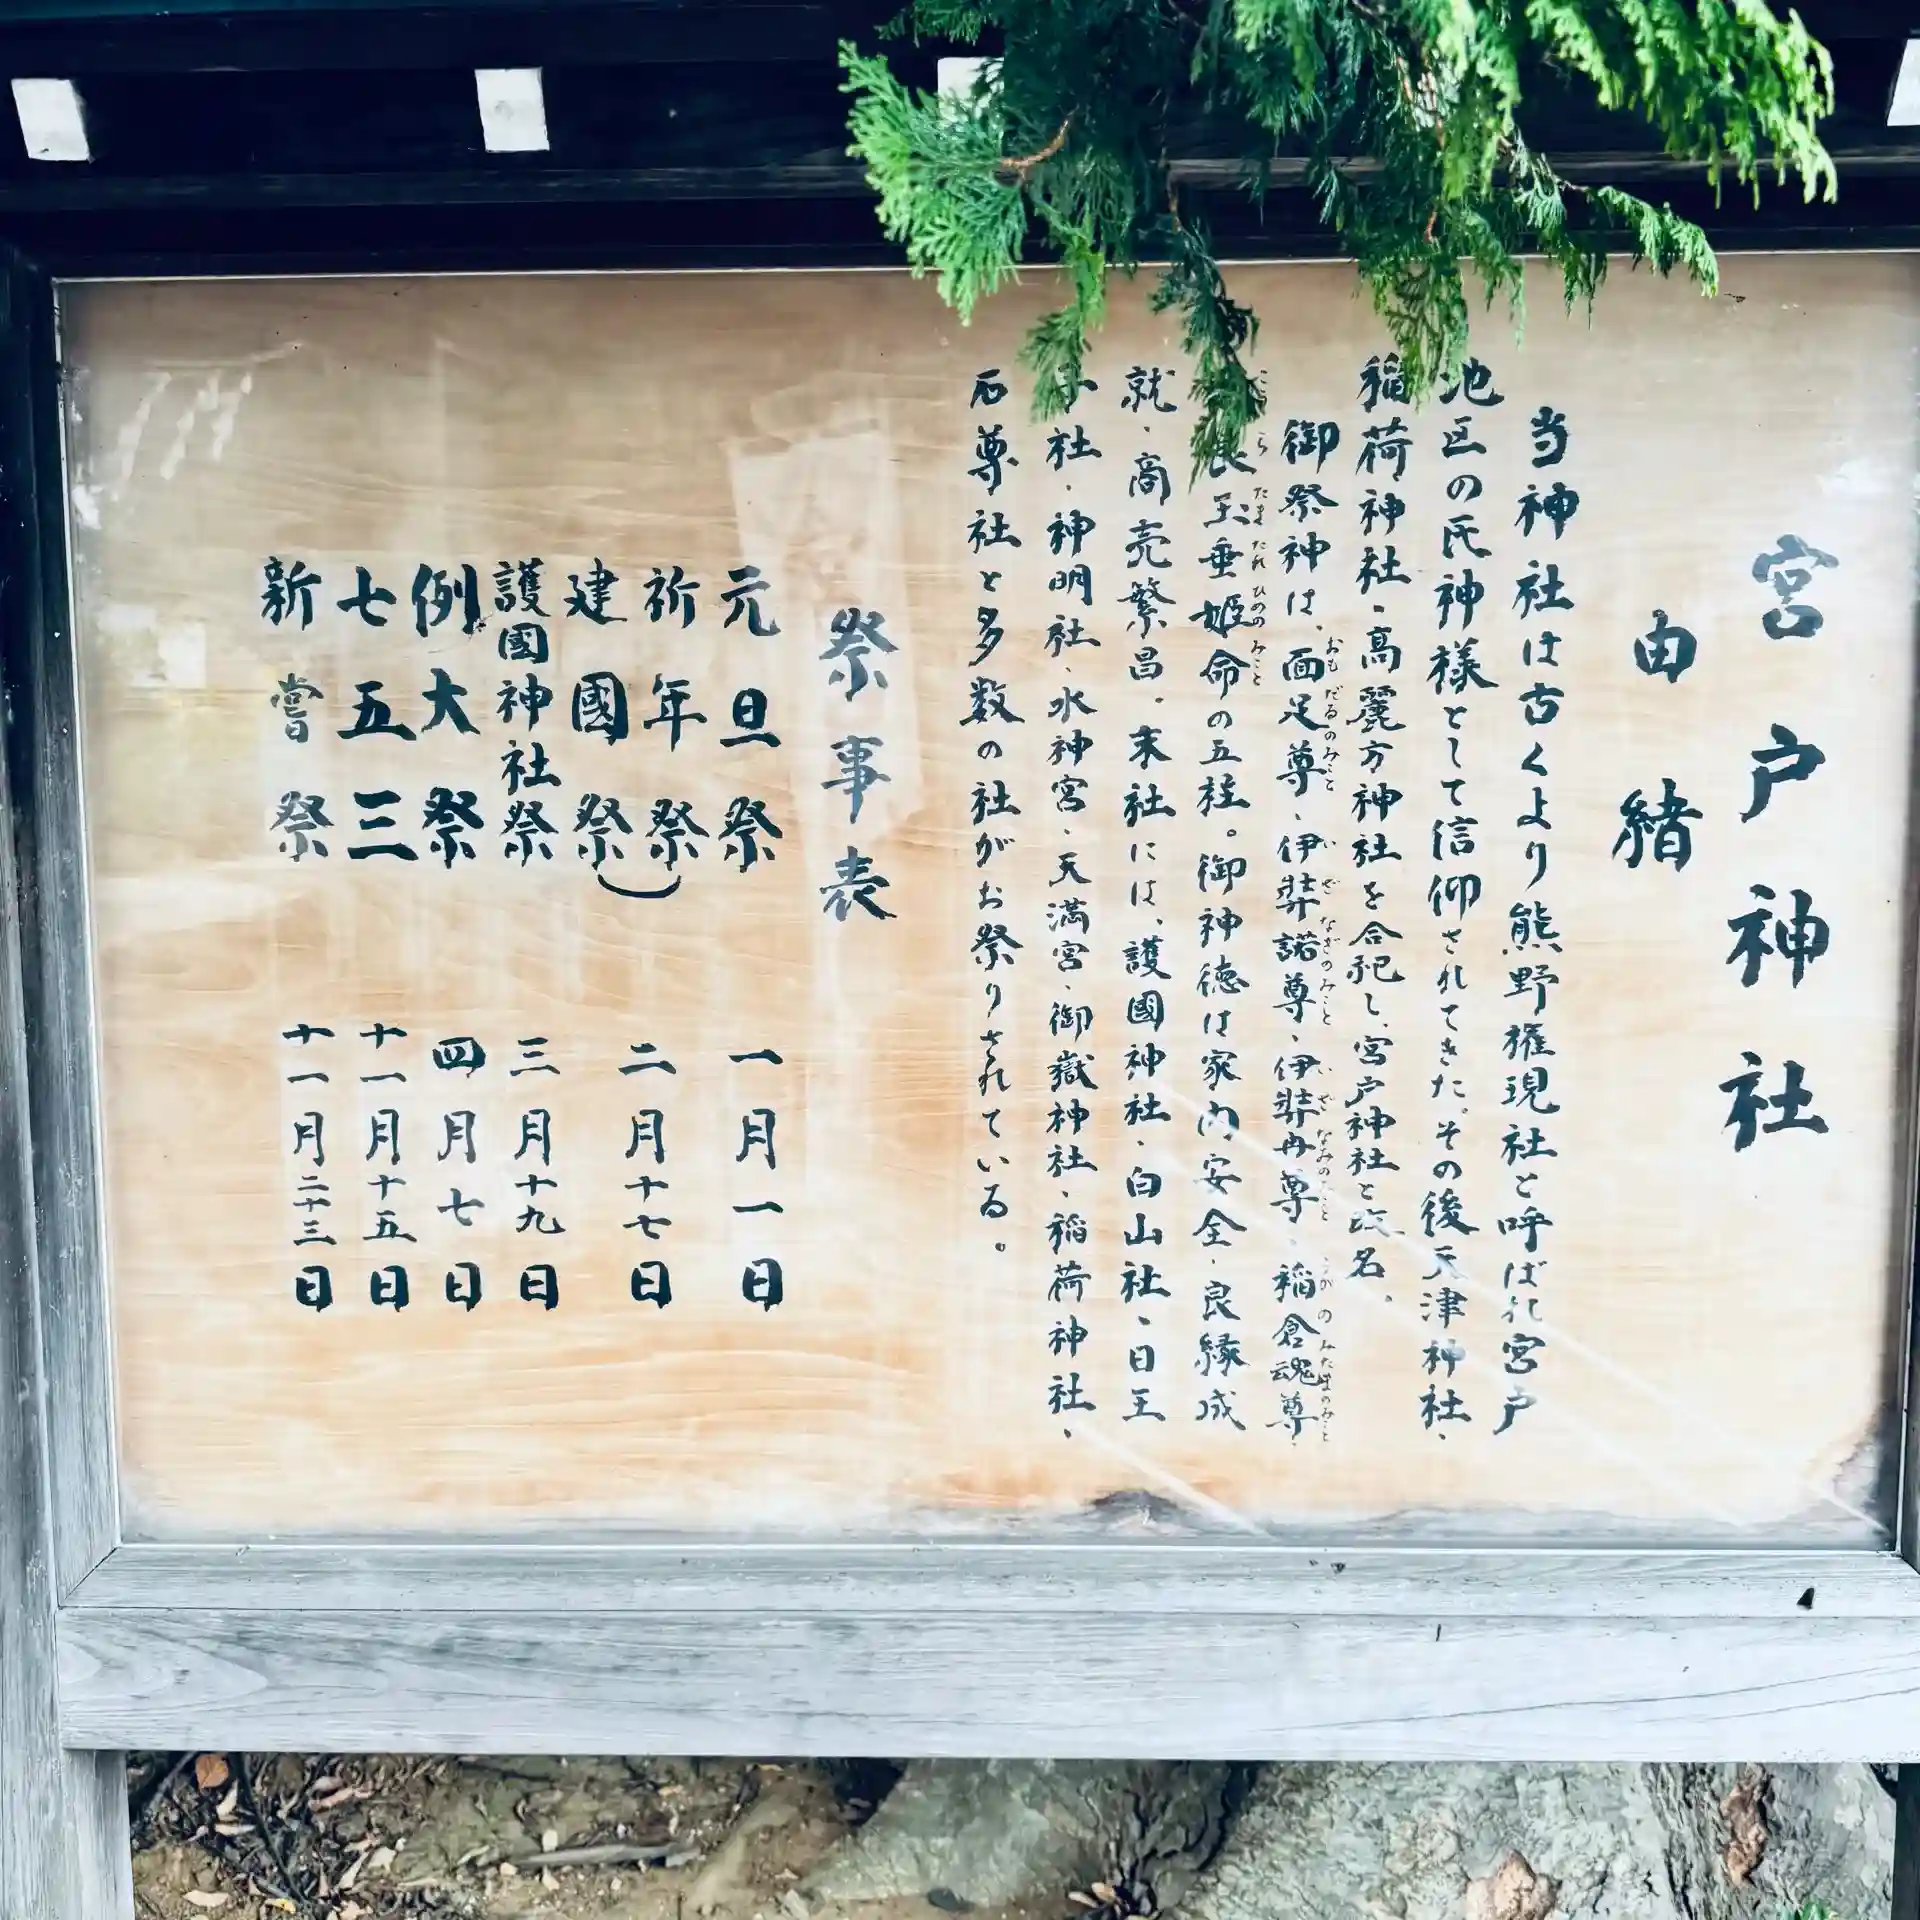 宮戸神社
由緒
当神社は古くより熊野権現社と呼ばれ宮戸
地区の氏神様として信仰されてきた。その後天津神社、
稲荷神社・高麗方神社を合祀し、宮戸神社と改名。
御祭神は、面足尊・伊弉諾尊・伊弉冉尊・稲倉魂尊・
おもだるのみこと いざなぎのみこと いざなみのみこと うがのみたまのみこと
良玉垂姫命の五柱。御神徳は家内安全・良縁成
ら たまたれひめのみこと
就・商売繁昌。末社には、護國神社・白山社、日王
子社・神明社・水神宮・天満宮・御嶽神社・稲荷神社・
石尊社と多数の社がお祭りされている。
祭事表
元旦祭 一月一日
祈年祭 二月十七日
建國祭
護國神社祭 三月十九日
例大祭 四月七日
七五三 十一月十五日
新嘗祭 十一月二十三日